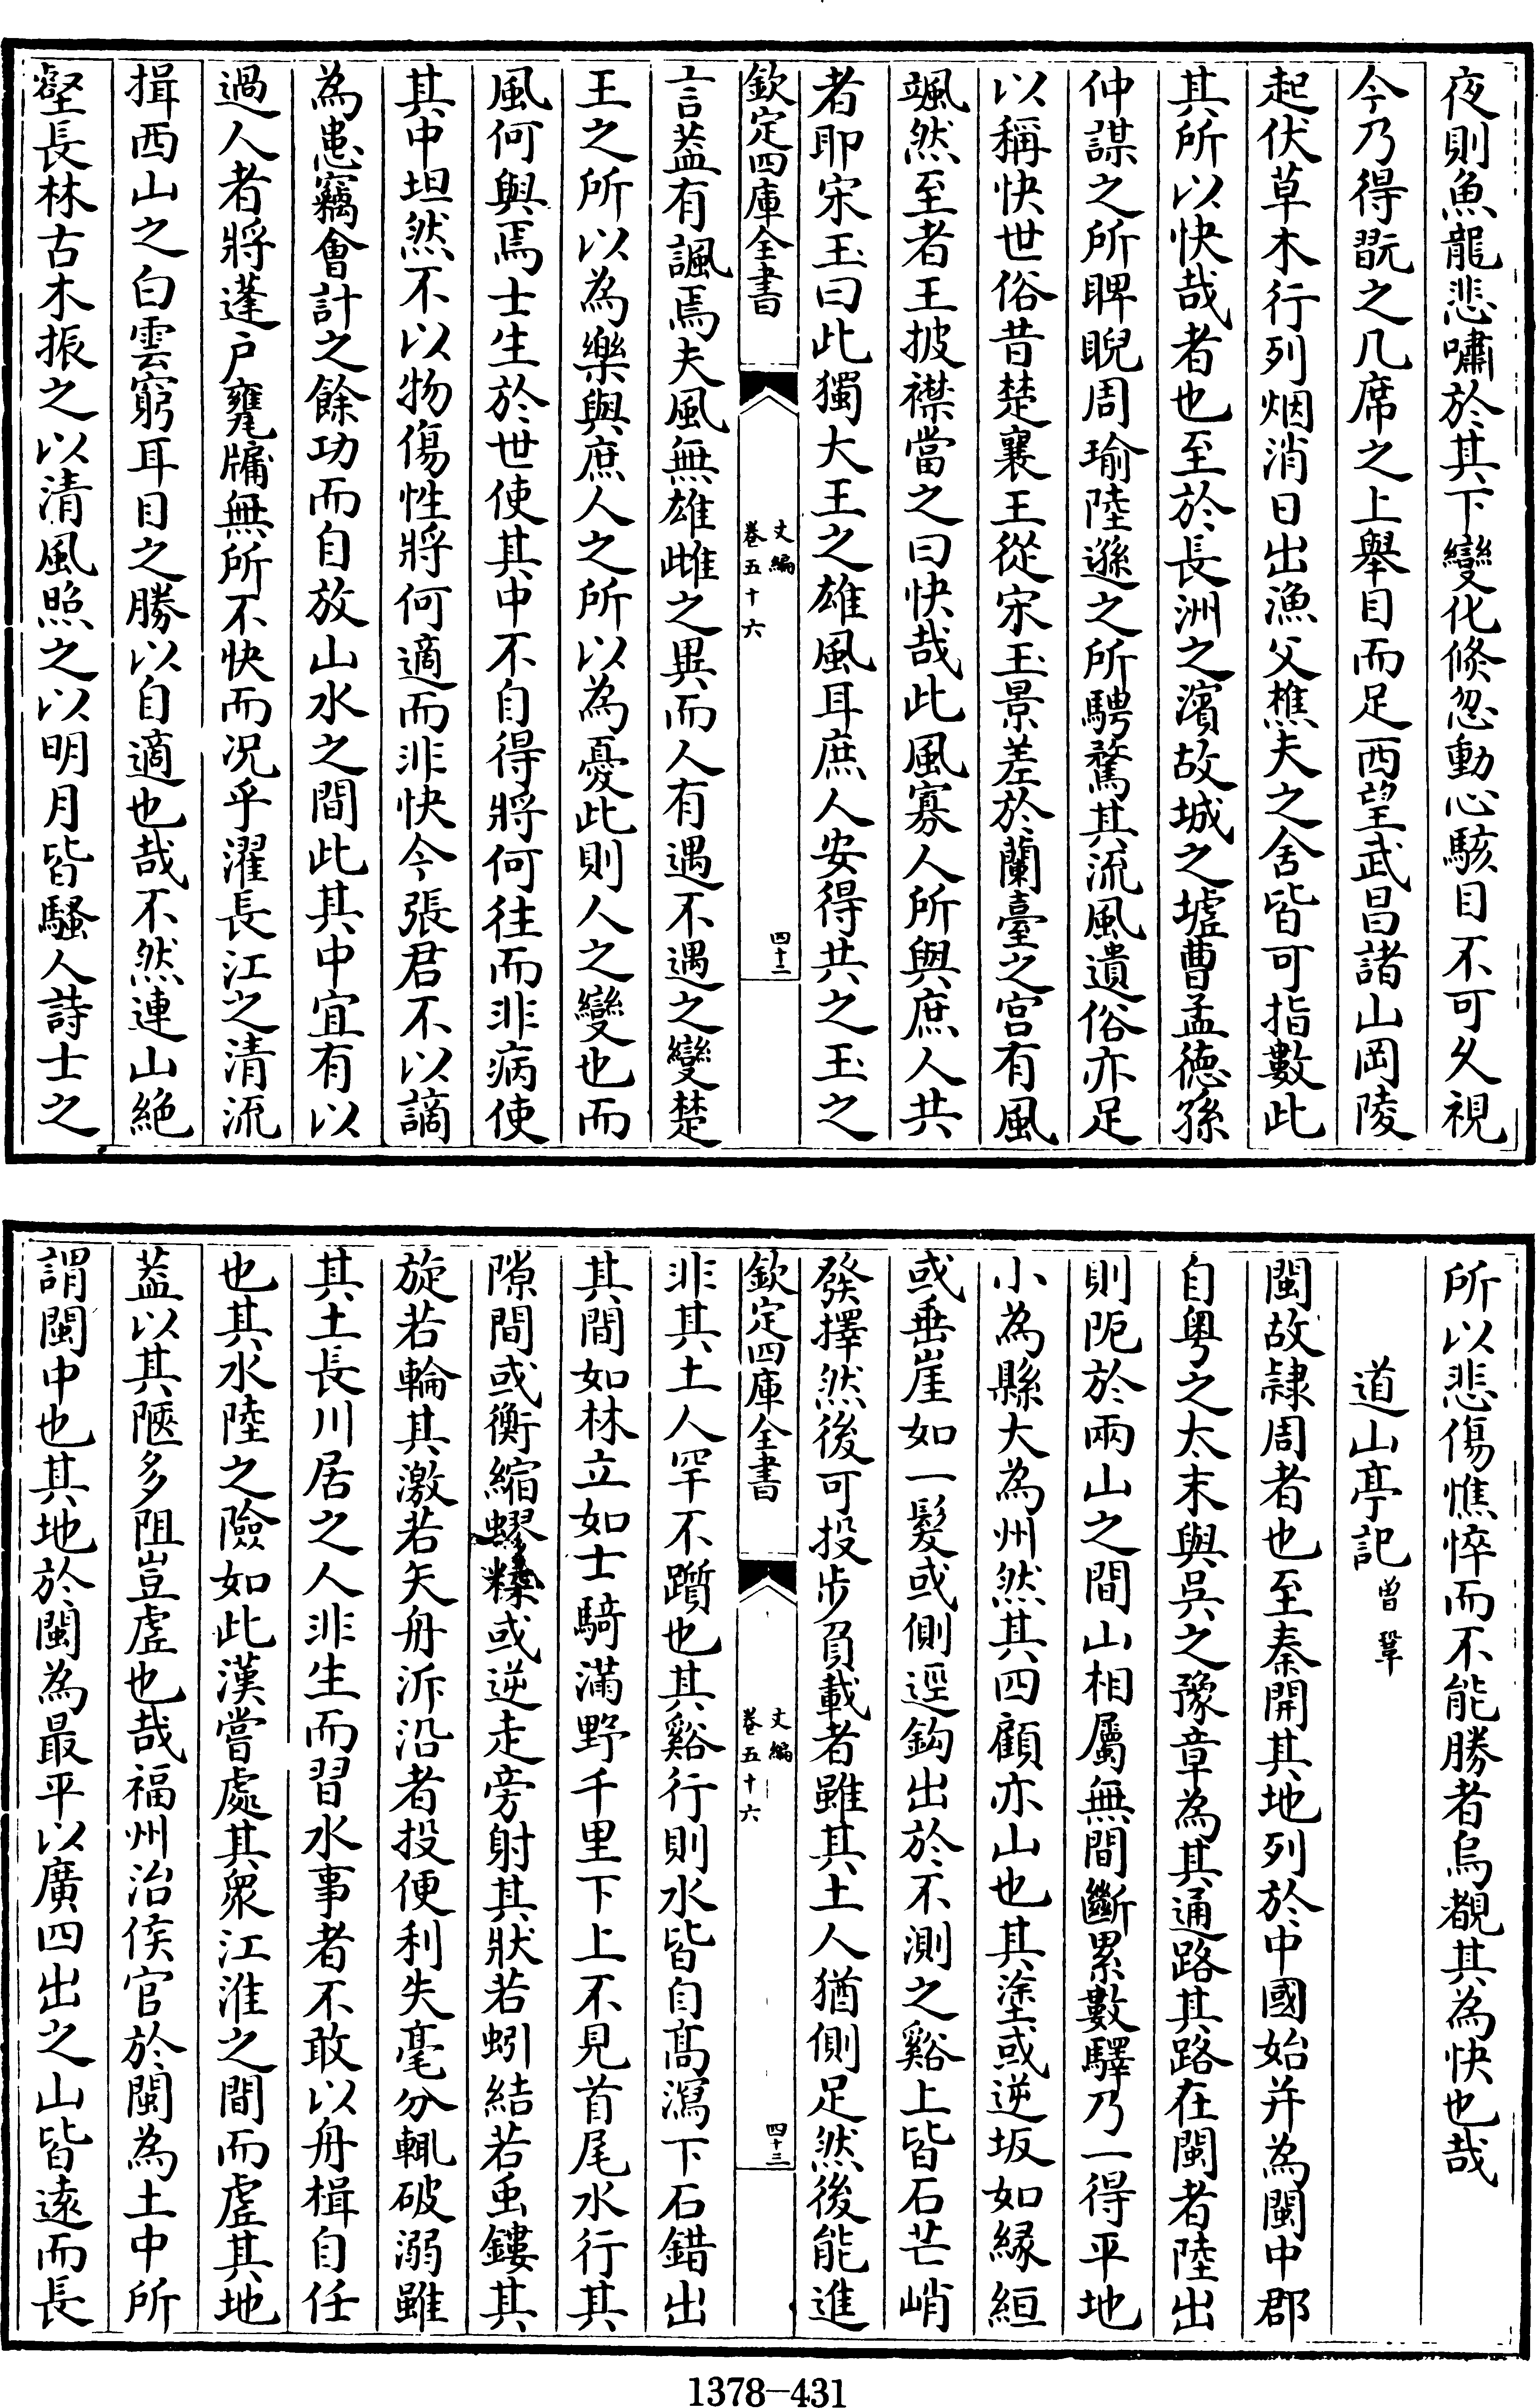 夜則魚龍悲嘯於其下變化倐忽動心駭目不可乆視
今乃得翫之几席之上舉目而足西望武昌諸山岡陵
起伏草木行列烟消日出漁父樵夫之舍皆可指數此
其所以快哉者也至於長洲之濱故城之墟曹孟德孫
仲謀之所睥睨周瑜陸遜之所騁騖其流風遺俗亦足
以稱快世俗昔楚襄王從宋玉景差於蘭臺之宫有風
颯然至者王披襟當之曰快哉此風寡人所與庶人共
者耶宋玉曰此獨大王之雄風耳庶人安得共之玉之
欽定四庫全書
文編
卷五十六
四十二
言葢有諷焉夫風無雄雌之異而人有遇不遇之變楚
王之所以為樂與庶人之所以為憂此則人之變也而
風何與焉士生於世使其中不自得將何往而非病使
其中坦然不以物傷性將何適而非快今張君不以謫
為患竊會計之餘功而自放山水之間此其中宜有以
過人者將蓬户甕牖無所不快而况乎濯長江之清流
揖西山之白雲窮耳目之勝以自適也哉不然連山絶
壑長林古木振之以清風照之以明月皆騷人詩士之
所以悲傷憔悴而不能勝者烏覩其為快也哉
道山亭記曾鞏
閩故隷周者也至秦開其地列於中國始并為閩中郡
自粤之太末與吳之豫章為其通路其路在閩者陸出
則阨於兩山之間山相屬無間斷累數驛乃一得平地
小為縣大為州然其四顧亦山也其塗或逆坂如縁絙
或垂崖如一髮或側逕鈎出於不測之谿上皆石芒峭
發擇然後可投步負載者雖其土人猶側足然後能進
欽定四庫全書
文編
卷五十六
四十三
非其土人罕不躓也其谿行則水皆自髙瀉下石錯出
其間如林立如士騎滿野千里下上不見首尾水行其
隙間或衡縮蟉糅或逆走旁射其狀若蚓結若虫鏤其
旋若輪其激若矢舟泝沿者投便利失毫分輒破溺雖
其土長川居之人非生而習水事者不敢以舟楫自任
也其水陸之險如此漢嘗處其衆江淮之間而虚其地
葢以其陿多阻豈虚也哉福州治侯官於閩為土中所
謂閩中也其地於閩為最平以廣四出之山皆逺而長
1378—431